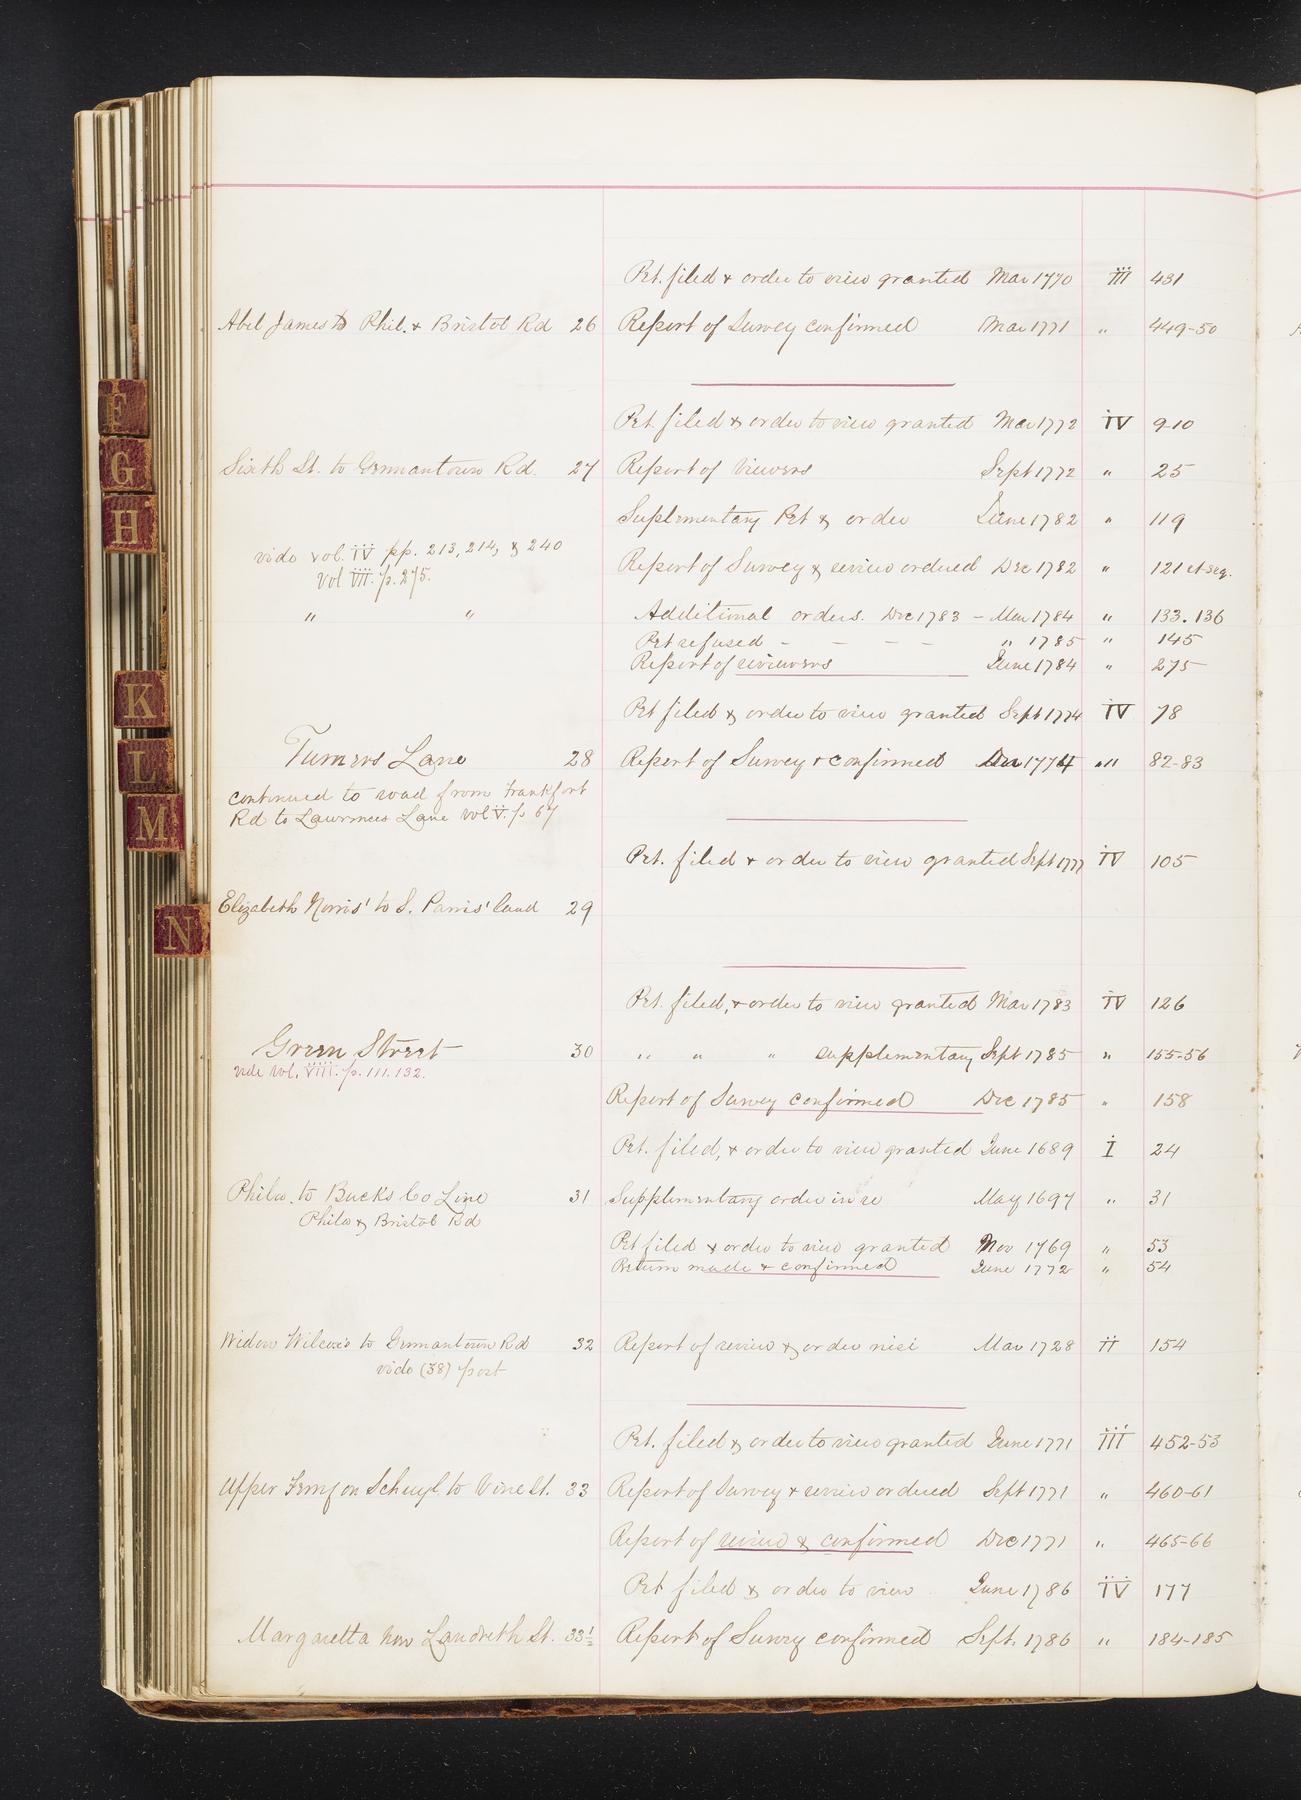 Pet. filed & order to view granted Mar 1770 III 431
Abel James to Phil. & Bristol Rd 26 Report of Survey confirmed Mar 1771 " 449-50
Pet. filed & order to view granted Mar 1772 IV 9-10
Sixth St. to Germantown Rd. 27 Report of Viewers Sept 1772 " 25
Suplementary Pet & order June 1782 " 119
vide vol. IV pp. 213, 214, & 240
Vol VII. p. 275.
Report of Survey & review ordered Dec 1782 " 121 et seq.
" " Additional orders. Dec 1783 - Mar 1784 " 133. 136
Pet refused - - - - " 1785 " 145
Report of reviewers June 1784 " 275
Pet filed & order to view granted Sept 1774 IV 78
Turners Lane 28 Report of Survey & confirmed Dec 1774 " 82-83
continued to road from Frankfort
Rd to Lawrences Lane vol V. p 67
Pet. filed & order to view granted Sept 1777 IV 105
Elizabeth Norris' to S. Parris' land 29
Pet. filed, & order to view granted Mar 1783 IV 126
Green Street 30 " " " supplementary Sept 1785 " 155-56
vide vol. VIII. p. 111. 132.
Report of Survey confirmed Dec 1785 " 158
Pet. filed, & order to view granted June 1689 I 24
Phila. to Buck's Co Line 31 Supplementary order in re May 1697 " 31
Phila & Bristol Rd
Pet filed & order to view granted Nov 1769 " 53
Return made & confirmed June 1772 " 54
Widow Wilcox's to Germantown Rd 32 Report of review & order nisi Mar 1728 II 154
vide (38) post
Pet. filed & order to view granted June 1771 III 452-53
Upper Ferry on Schuyl. to Vine St. 33 Report of Survey & review ordered Sept 1771 " 460-61
Report of review & confirmed Dec 1771 " 465-66
Pet filed & order to view June 1786 IV 177
Margaretta now Landreth St. 33½ Report of Survey confirmed Sept. 1786 " 184-185
F
G
H
K
L
M
N